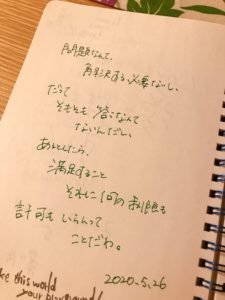 問題なんて、
解決する必要ないし、
だって
そもそも 答えなんて
ないんだし、
あるとしたら、
満足すること
それに何の制限も
許可もいらんって
ことだわ。
2020.5.26
ke this world
your playground